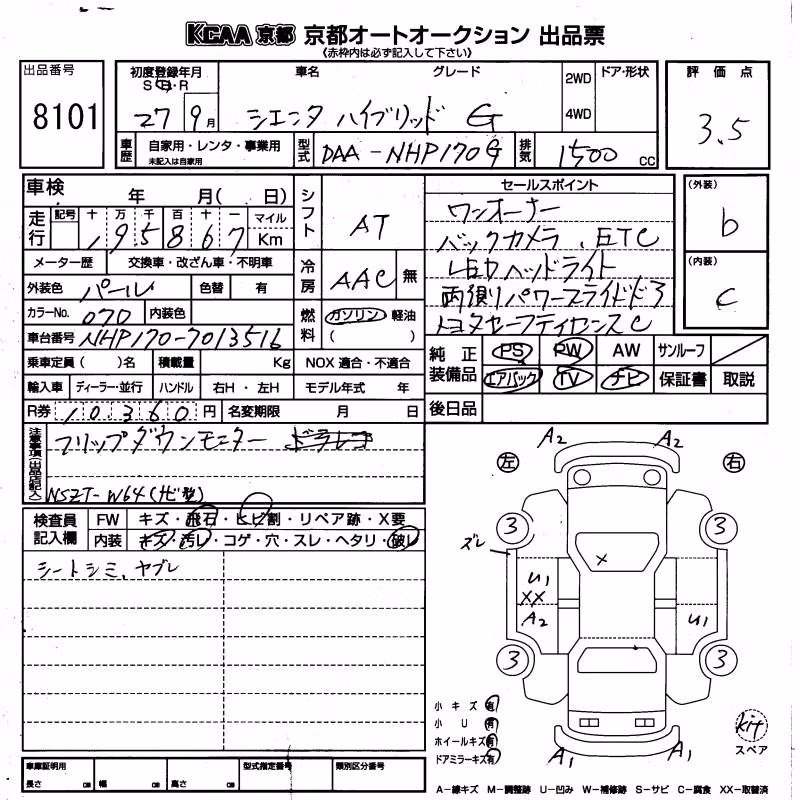 KCAA 京都 京都オートオークション 出品票
(赤枠内は必ず記入して下さい)
出品番号
8101
初度登録年月
S・H・R
27 9月
車名 グレード
シエンタ ハイブリッド G
2WD
4WD
ドア・形状
評価点
3.5
車歴 自家用・レンタ・事業用
未記入は自家用
型式 DAA-NHP170G
排気 1500 cc
車検 年 月( 日)
走行 記号 十 万 千 百 十 一 マイル
195867 Km
シフト AT
セールスポイント
ワンオーナー
バックカメラ、ETC
LEDヘッドライト
両側パワースライドドア
トヨタセーフティセンスC
(外装)
b
(内装)
C
メーター歴 交換車・改ざん車・不明車
冷房 AAC 無
外装色 パール 色替 有
カラーNo. 070 内装色
燃料 ガソリン 軽油
( )
車台番号 NHP170-7013516
乗車定員( )名 積載量 Kg NOX 適合・不適合
純正装備品 PS PW AW サンルーフ
エアバック TV ナビ 保証書 取説
輸入車 ディーラー・並行 ハンドル 右H・左H モデル年式 年
R券 10,360 円 名変期限 月 日
後日品
注意事項(出品店記入)
フリップダウンモニター ドラレコ
NSZT-W64(ナビ型)
検査員記入欄
FW キズ・飛石・ヒビ割・リペア跡・X要
内装 キズ・汚レ・コゲ・穴・スレ・ヘタリ・破レ
シートシミ、ヤブレ
A2 A2
左 右
3 3
ズレ
X
U1
XX
A2
U1
3 3
小キズ 有
小U 有
ホイールキズ 有
ドアミラーキズ 有
A1 A1
kit
スペア
車庫証明用
長さ cm 幅 cm 高さ cm
型式指定番号 類別区分番号
A-線キズ M-調整跡 U-凹み W-補修跡 S-サビ C-腐食 XX-取替済